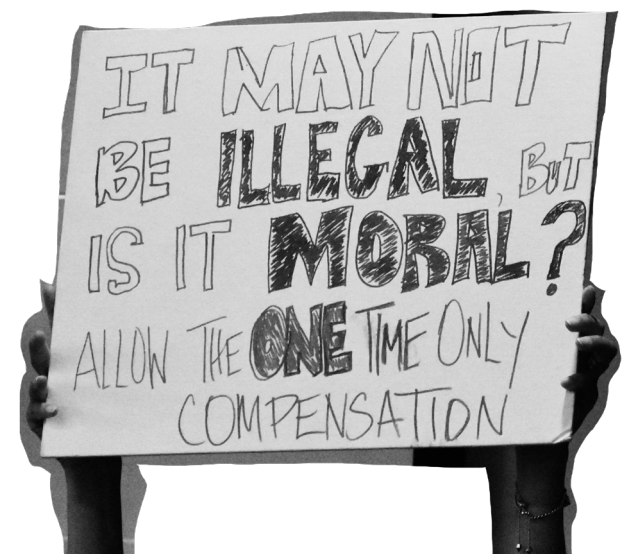 IT MAY NOT
BE ILLEGAL, BUT
IS IT MORAL?
ALLOW THE ONE TIME ONLY
COMPENSATION